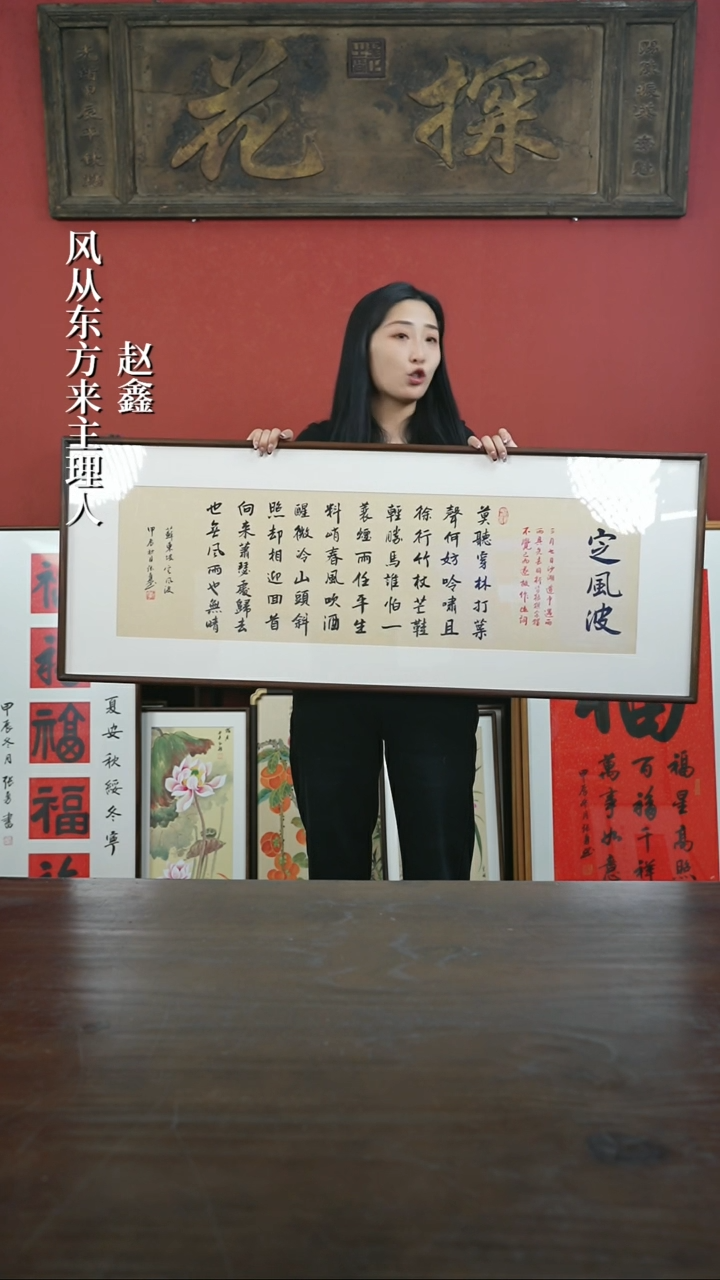 探花
风从东方来主理人
赵鑫
定風波
三月七日沙湖道中遇雨
莫聽穿林打葉
聲何妨吟嘯且
徐行竹杖芒鞋
輕勝馬誰怕一
蓑煙雨任平生
料峭春風吹酒
醒微冷山頭斜
照却相迎回首
向来蕭瑟處歸去
也无風雨也無晴
蘇東坡定風波
夏安秋綏冬寧
福
福
甲辰冬月
福
福星高照
百福千祥
萬事如意